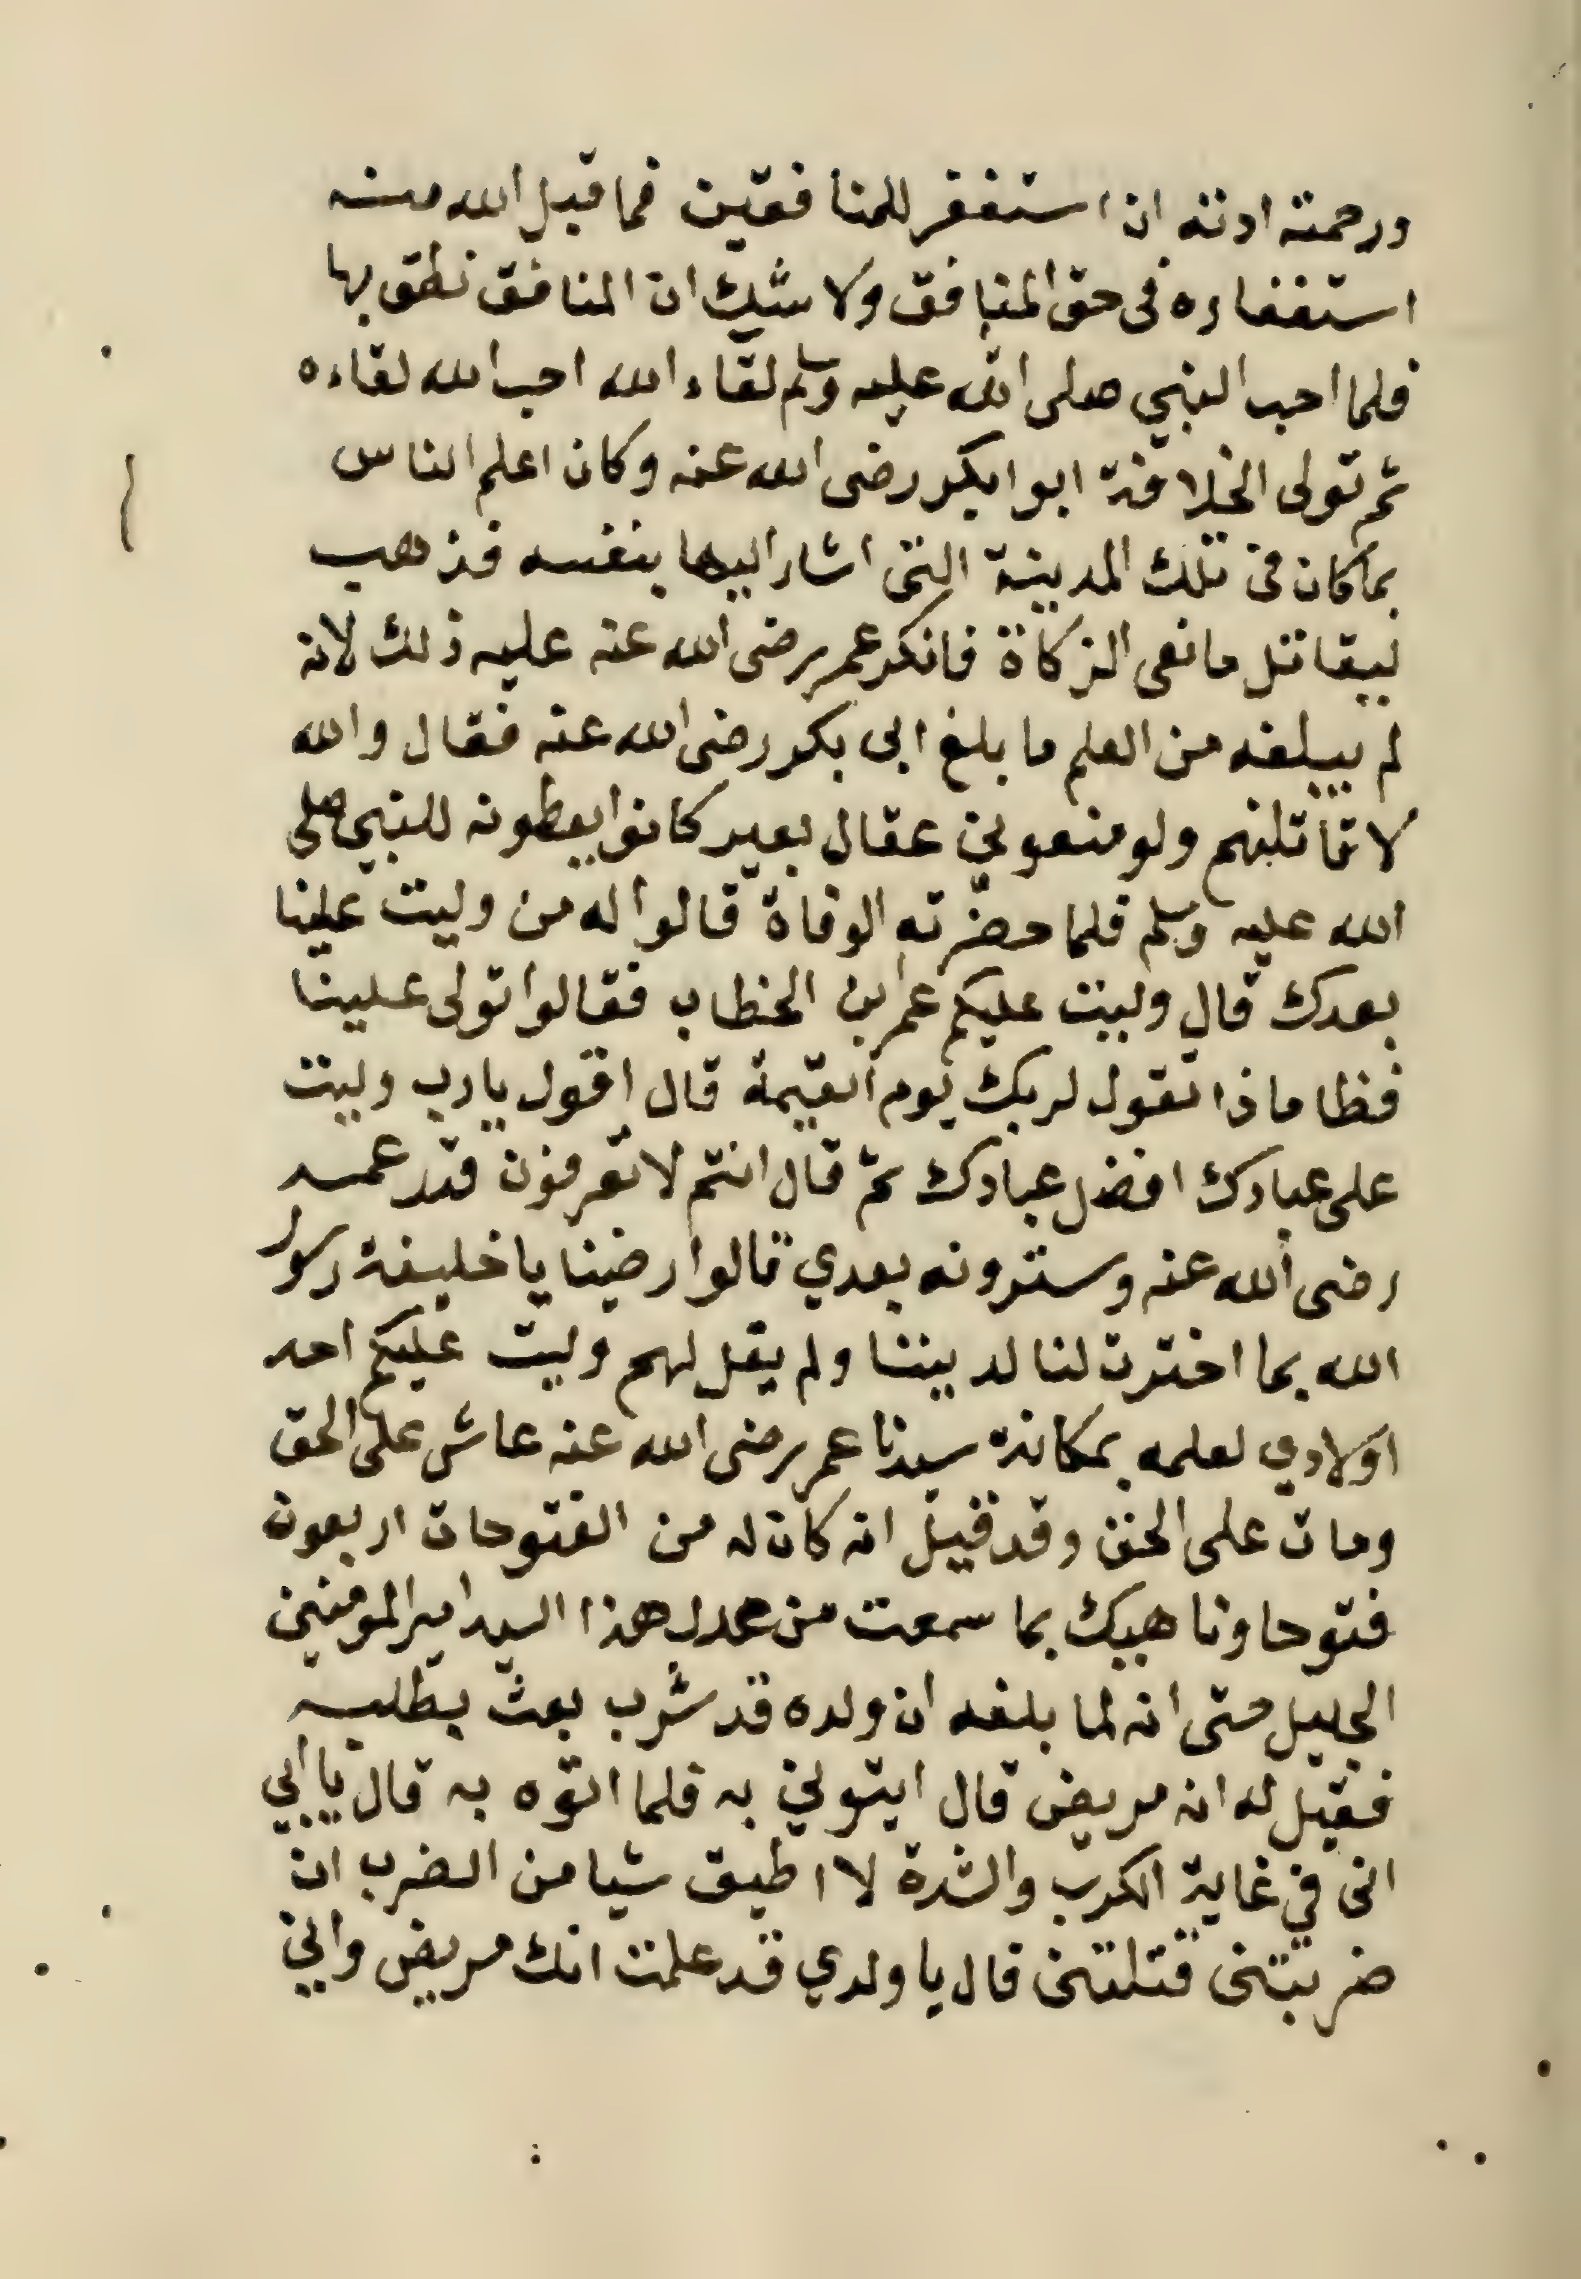 ورحمته ادته ان استغفر للمنافقين فما قبل الله منه
استغفاره فى حق المنافق ولا شك ان المنافق نطق بها
فلما احب النبي صلى الله عليه وسلم لقاء الله احب الله لقاءه
ثم تولى الخلافة ابوا بكر رضى الله عنه وكان اعلم الناس
بما كان فى تلك المدينة التى اشار اليها بنفسه فذهب
ليقاتل مانعى الزكاة فانكر عمر رضى الله عنه عليه ذلك لانه
لم يبلغه من العلم ما بلغ ابى بكر رضى الله عنه فقال والله
لاقاتلنهم ولو منعوني عقال بعير كانوا يعطونه للنبي صلى
الله عليه وسلم فلما حضرته الوفاة قالوا له من وليت علينا
بعدك قال وليت عليكم عمر ابن الخطاب فقالوا تولى علينا
فظا ماذا تقول لربك يوم القيمة قال اقول يا رب وليت
على عبادك افضل عبادك ثم قال انتم لا تعرفون قدر عمر
رضى الله عنه وسترونه بعدي قالوا رضينا يا خليفة رسول
الله بما اخترت لنا لديننا ولم يقل لهم وليت عليكم احد
اولادي لعلمه بمكانة سيدنا عمر رضى الله عنه عاش على الحق
ومات على الحق وقد قيل انه كان له من الفتوحات اربعون
فتوحا وناهيك بما سمعت من عدل هذا السيد امير المومنين
الجليل حتى انه لما بلغه ان ولده قد شرب بعث يطلبه
فقيل له انه مريض قال ايتوني به فلما اتوه به قال يا ابي
انى في غاية الكرب والشدة لا اطيق شيا من الضرب ان
ضربتنى قتلتنى قال يا ولدي قد علمت انك مريض واني